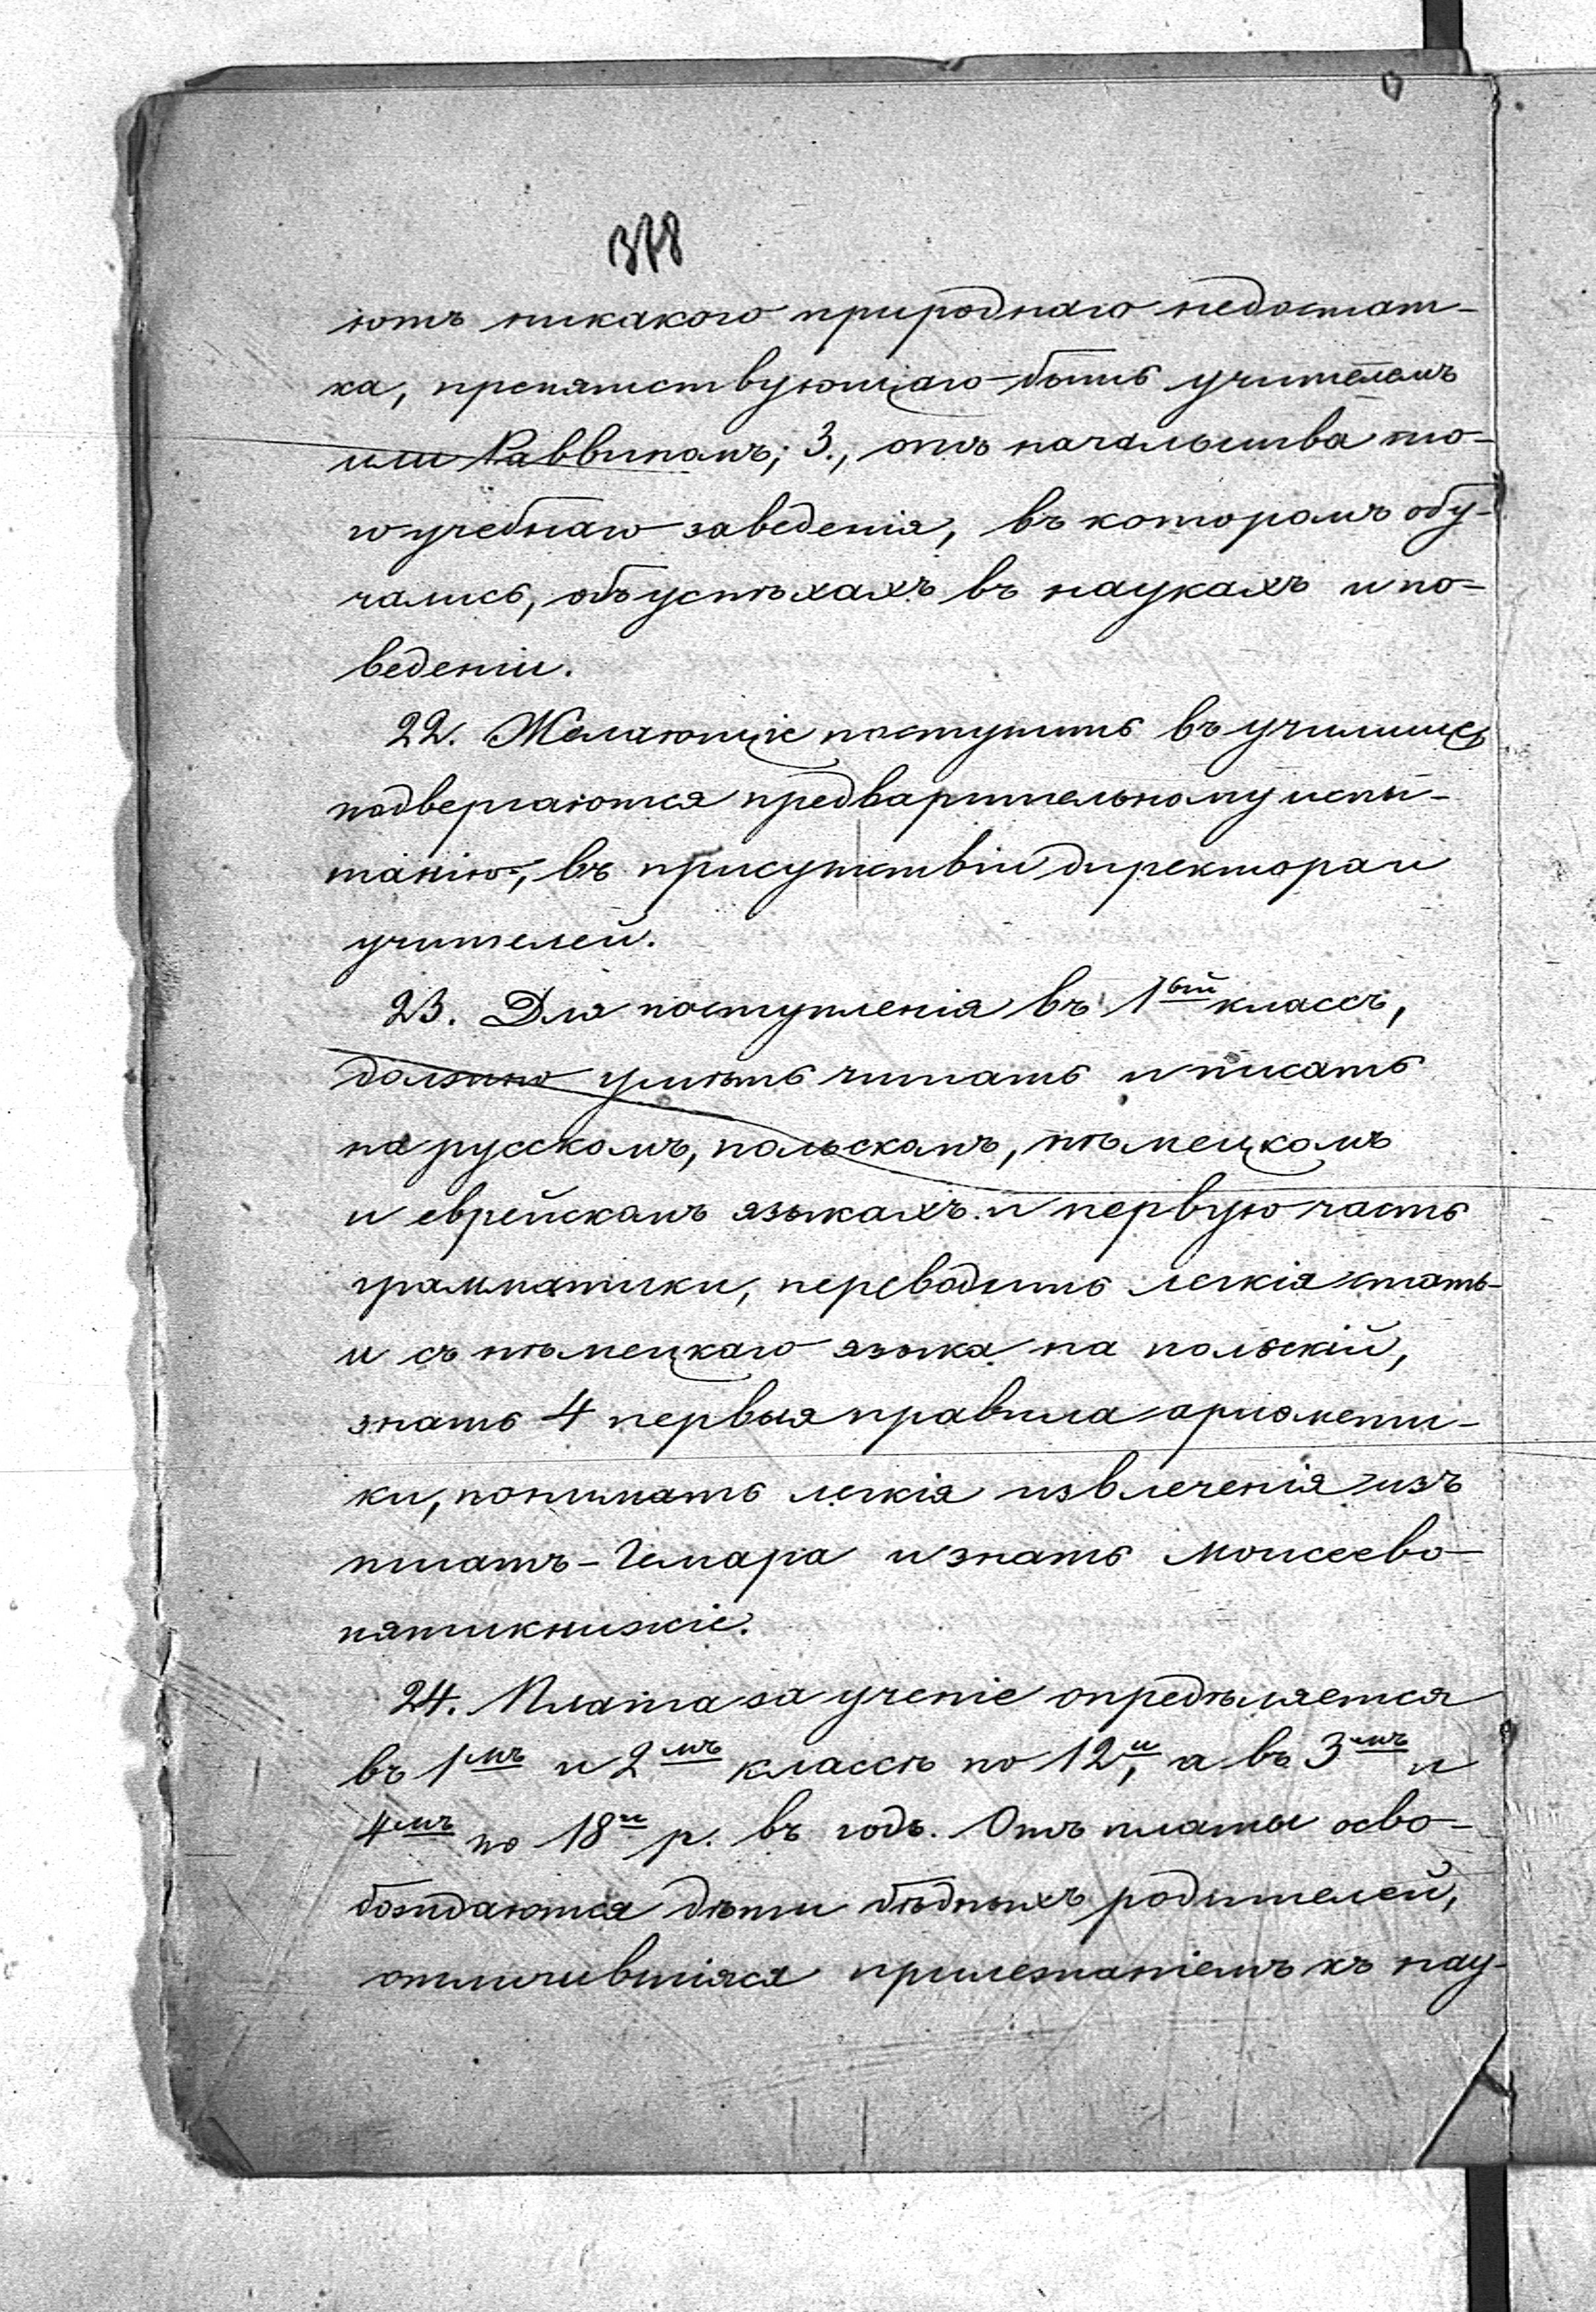 378
ютъ никакого природнаго недостат-
ка, препятствующаго быть учителемъ
или Раввиномъ; 3., отъ начальства то-
го учебнаго заведенія, въ которомъ обу-
чались, объ успѣхахъ въ наукахъ и по-
веденіи.
22. Желающіе поступить въ училище
подвергаются предварительному испы-
танію, въ присутствіи директора и
учителей.
23. Для поступленія въ 1ый классъ,
должно умѣть читать и писать
на русскомъ, польскомъ, нѣмецкомъ
и еврейскомъ языкахъ и первую часть
грамматики, переводить легкія стать-
и съ нѣмецкаго языка на польскій,
знать 4 первыя правила ариѳмети-
ки, понимать легкія извлеченія изъ
Гемара и знать Моисеево
пятикнижіе.
24. Плата за ученіе опредѣляется
въ 1мъ и 2мъ классѣ по 12и, а въ 3мъ и
4мъ по 18и р. въ годъ. Отъ платы осво-
бождаются дѣти бѣдныхъ родителей,
отличившіяся прилежаніемъ къ нау-